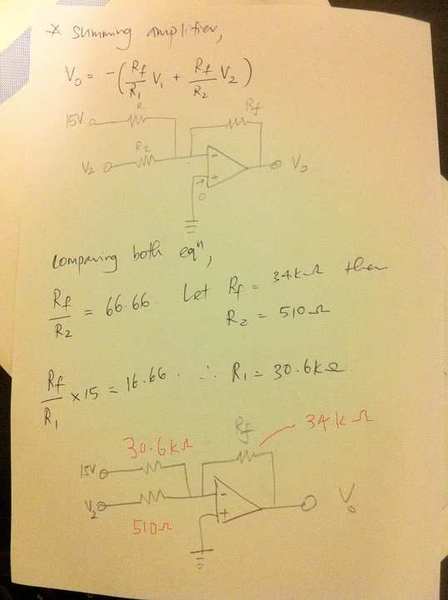 * Summing amplifier,
V₀ = -(Rf/R₁ V₁ + Rf/R₂ V₂)
15V R Rf
V₂ R₂ - V₀
+
0
Comparing both eqⁿ,
Rf/R₂ = 66.66. Let Rf = 34kΩ then
R₂ = 510Ω
Rf/R₁ × 15 = 16.66. ∴ R₁ = 30.6kΩ
30.6kΩ Rf 34kΩ
15V
V₂ - V₀
510Ω +